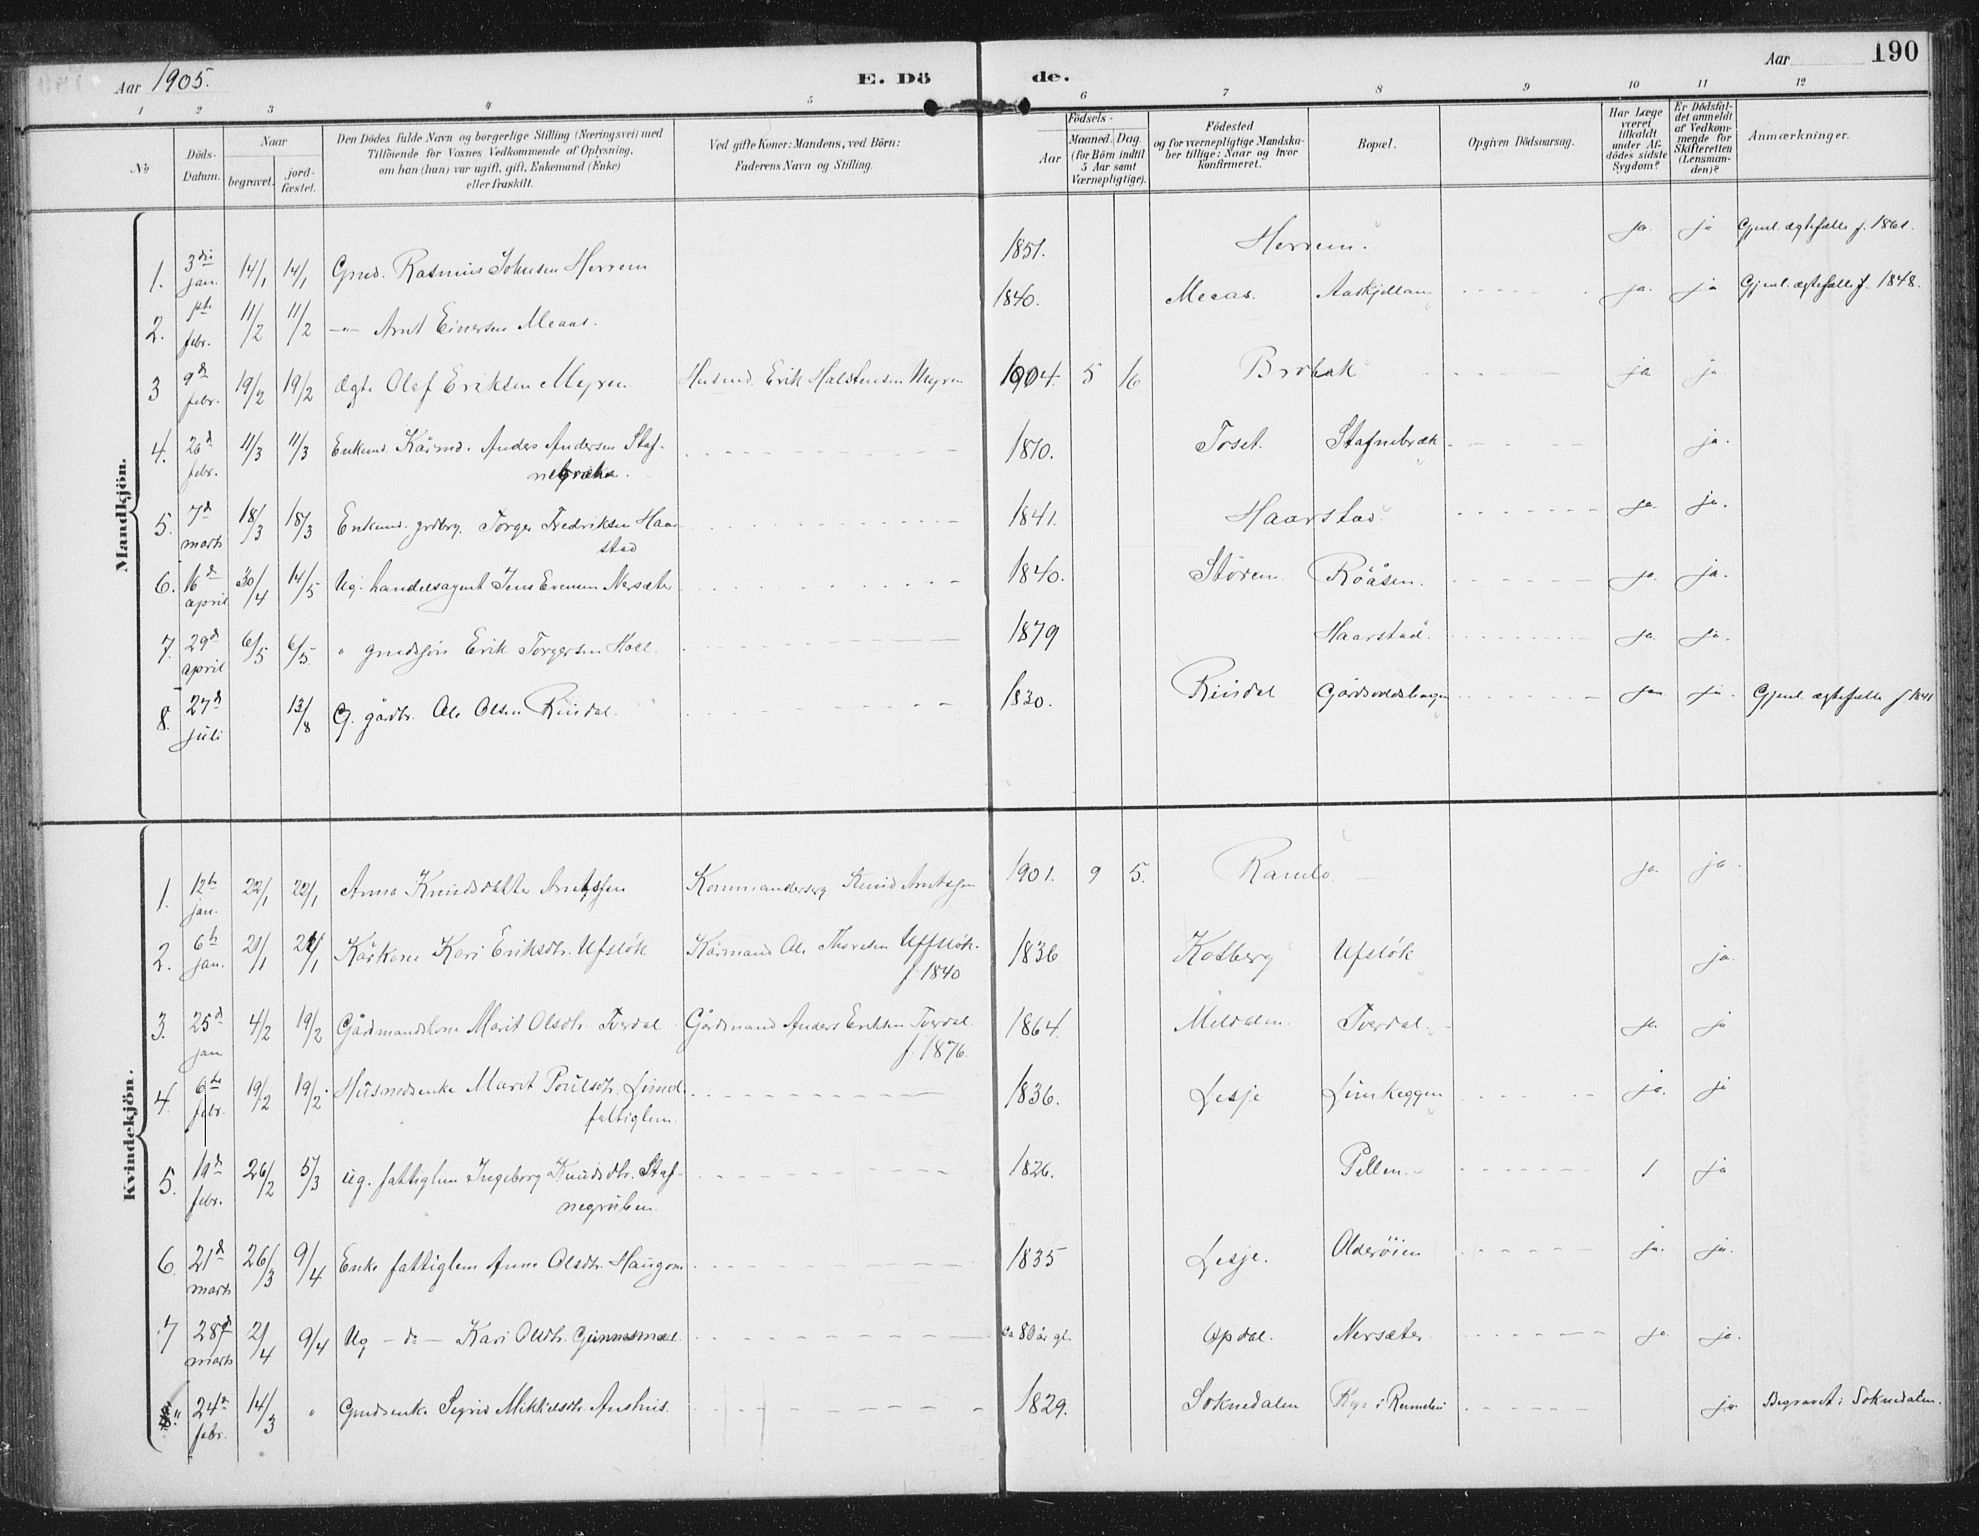 Aar 1905.
E. Dö
de.
Aar
190
1 2 3 4 5 6 7 8 9 10 11 12
No
Döds-Datum.
Naar
begravet.
jord-fæstet.
Den Dödes fulde Navn og borgerlige Stilling (Næringsvei) med
Tilföiende for Voxnes Vedkommende af Oplysning,
om han (hun) var ugift, gift, Enkemand (Enke)
eller fraskilt.
Ved gifte Koner: Mandens, ved Börn:
Faderens Navn og Stilling.
Födsels-
Aar
Maaned. Dag.
(for Börn indtil
5 Aar samt
Værnepligtige).
Födested
og for værnepligtige Mandska-
ber tillige: Naar og hvor
konfirmeret.
Bopæl.
Opgiven Dödsaarsag.
Har Læge
været
tilkaldt
under Af-
dödes sidste
Sygdom?
Er Dödsfal-
det anmeldt
af Vedkom-
mende for
Skifteretten
(Lensman-
den)?
Anmærkninger.
Mandkjön.
1. 3die jan. 14/1 14/1 Gmd. Rasmus Johnsen Herrem 1851. Herrem. ja. ja Gjenl. ægtefælle f. 1861.
2. 1ste febr. 11/2 11/2 -"- Arnt Einersen Meaas. 1840. Meaas. ja. ja Gjenl. ægtefælle f. 1848.
3 9de febr. 19/2 19/2 Ægte Olef Eriksen Myren Husmd. Erik Halstensen Myren 1904. 5 16 Bröbak ja ja.
4. 26d febr. 11/3 11/3 Enkemd. Kårmd. Anders Andersen Staf-
nebrække. 1870. Toset. Stafnebræk ja.
5. 7d marts 18/3 18/3 Enkemd. grdbrg. Torger Fredriksen Haar
stad 1841. Haarstad. ja. ja.
6. 16d april 30/4 14/5 Ug. handelsagent Jens Evensen Nersæter 1840. Stören. Röåsen. ja. ja.
7. 29d april 6/5 6/5 " gmdssøn Erik Torgersen Hoel. 1879 Haarstad. ja. ja.
8. 27d juli 13/8 G. gårdbr. Ole Olsen Rindal. 1830. Rindal Gårdsvoldshagen ja ja. Gjenl. ægtefælle f 1841
Kvindekjön.
1. 12te jan. 22/1 22/1 Anna Knudsdatter Arntssen Kommandersrg Knud Arntssen 1901. 9 5. Ramlo ja. ja.
2. 6te jan. 21/1 21/1 Kårkone Kari Eriksdtr. Ufslök Kårmand Ole Thoresen Uffslök.
f 1840 1836 Kotberg Ufslök ja.
3. 25d jan 4/2 19/2 Gårdmandskone Marit Olsdtr. Tverdal Gårdmand Anders Eriksen Tverdal.
f. 1876. 1864. Meldalen. Tverdal. ja. ja
4. 6te febr. 19/2 19/2. Husmdsenke Marit Poulsdtr. Lund
fattiglem. 1836. Lesje ja. ja
5. 10d febr. 26/2 5/3 ug. fattiglem Ingeborg Knudsdtr. Staf-
negruben. 1826. Pellen. 1 ja
6. 21d marts 26/3 9/4 Enke fattiglem Anne Olsdtr. Haugom 1835 Lesje. Alderöien ja. ja.
7 28d marts 2/4 9/4 Ug - do - Kari Olsdtr. Gunnesmæl ca 80 år gl. Opdal. Nersæter ja. ja.
8." 24d febr. 14/3 " Gmdsenke Sigrid Mikkelsdtr Aushus. 1829. Soknedalen ja. Begravet i Soknedalen.